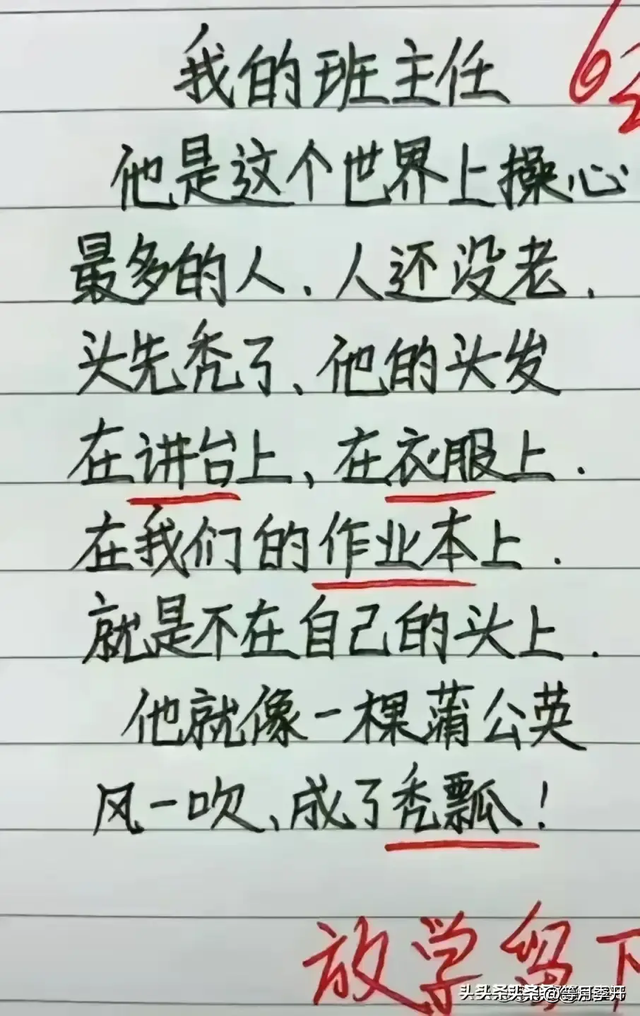 我的班主任
6
他是这个世界上操心
最多的人、人还没老.
头先秃了、他的头发
在讲台上、在衣服上.
在我们的作业本上.
就是不在自己的头上.
他就像一棵蒲公英
风一吹、成了秃瓢!
放学留下